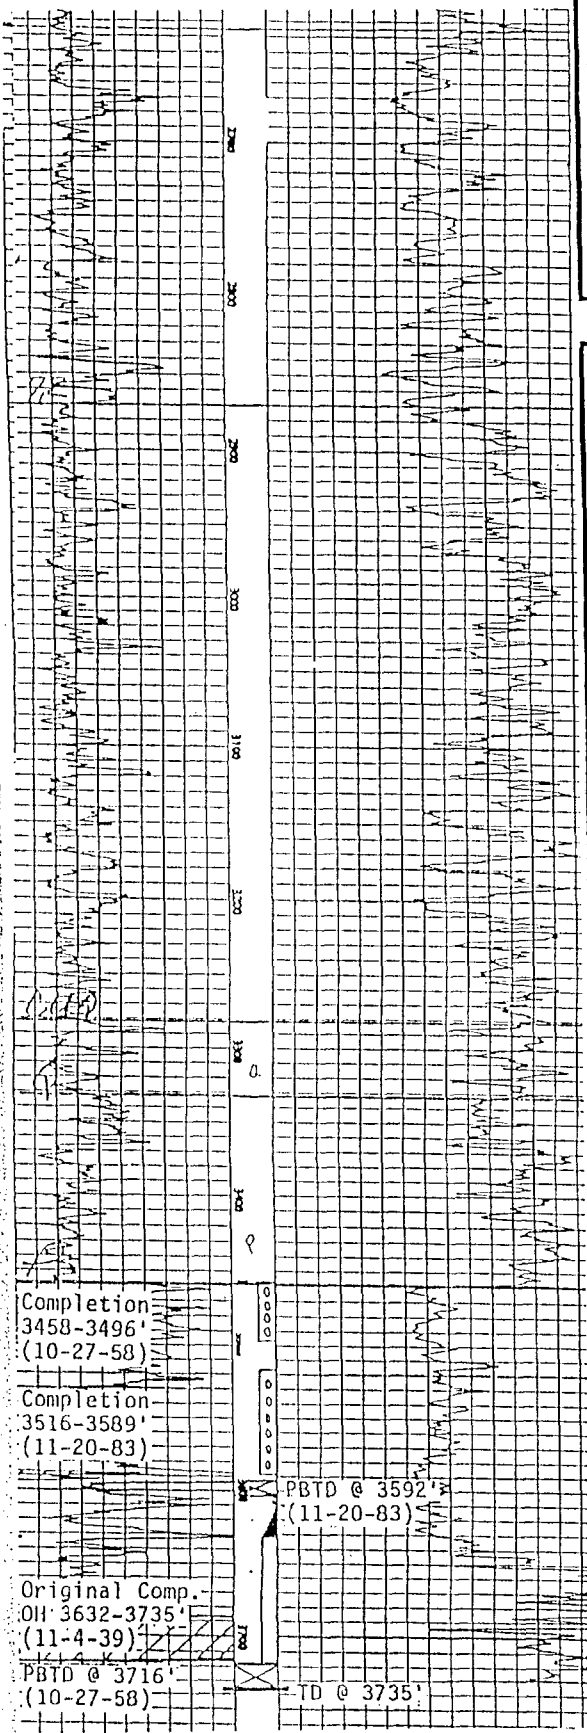 2700
2800
2900
3000
3100
3200
3300
3400
Completion
3458-3496'
(10-27-58)
Completion
3516-3589'
(11-20-83)
PBTD @ 3592'
(11-20-83)
Original Comp.
OH 3632-3735'
(11-4-39)
3700
PBTD @ 3716'
(10-27-58)
TD @ 3735'